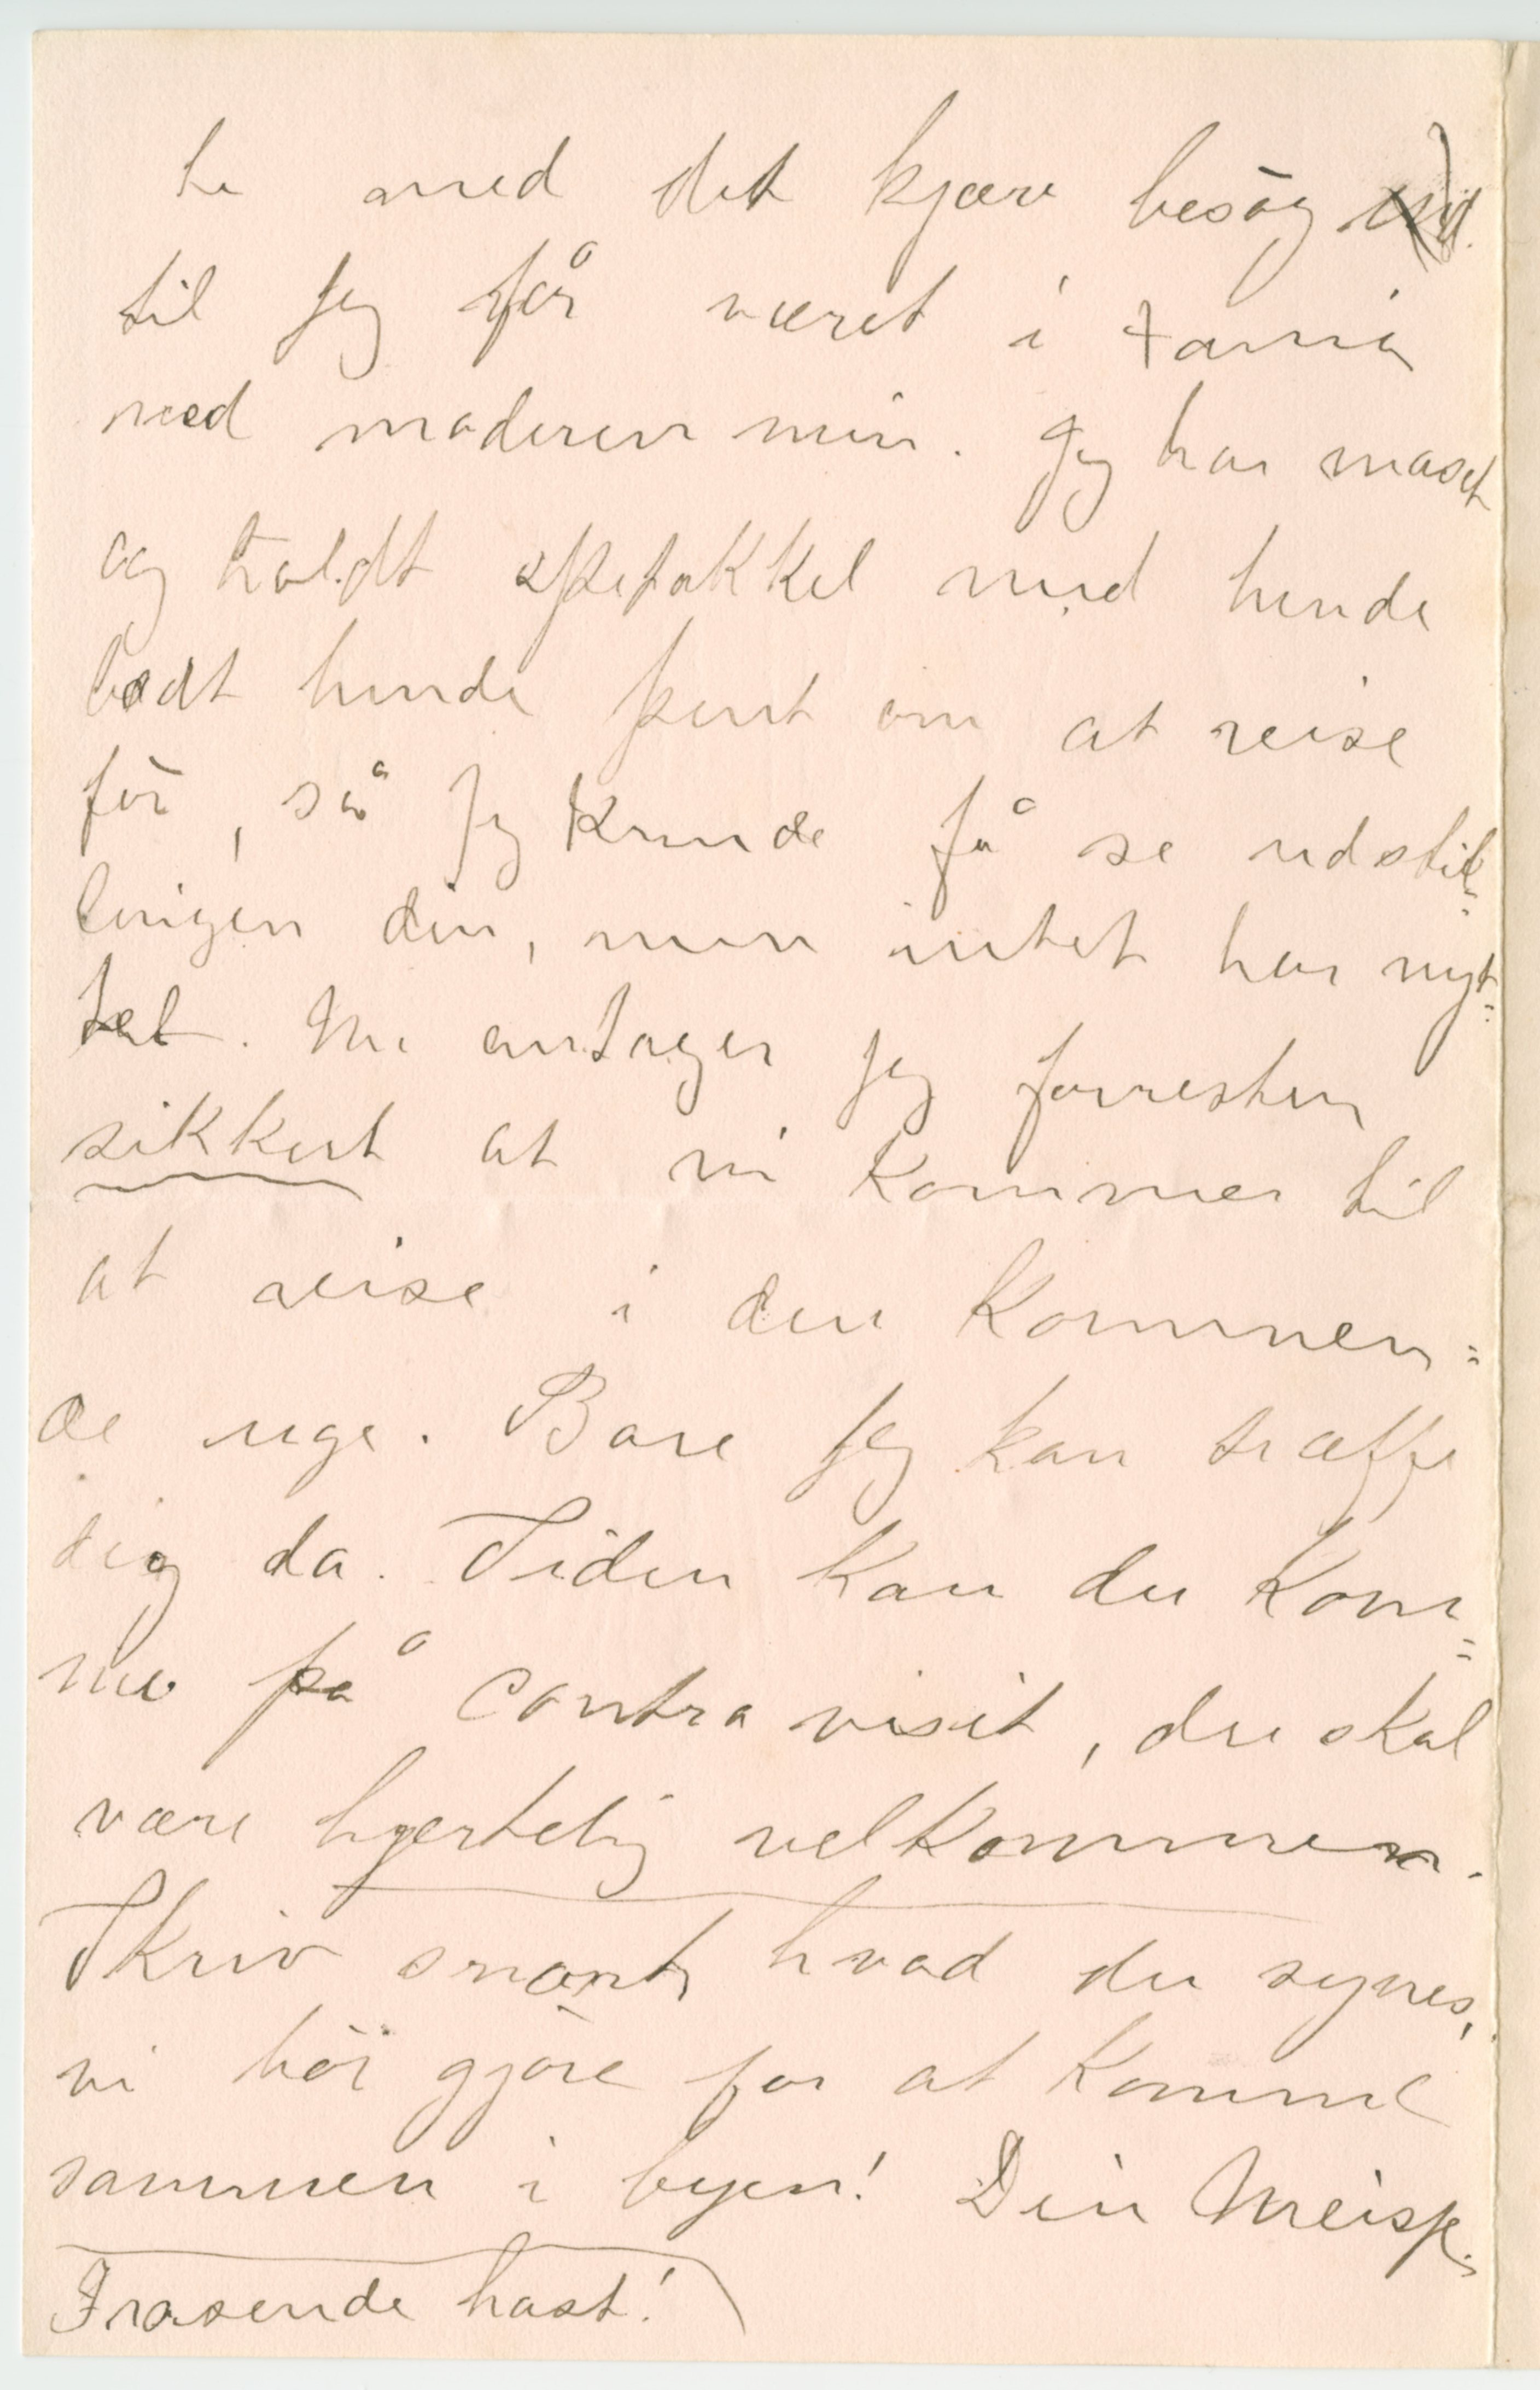 te med det kjære besøg
til jeg får været i Xania
med moderen min. Jeg har maset
og holdt spetakkel med hende
bedt hende pent om at reise
før, så jeg kunde få se udstil=
lingen din, men intet har nyt=
tet. Nu antager jeg forresten
sikkert at vi kommer til
at reise i den kommen=
de uge. Bare jeg kan træffe
dig da. Siden kan du kom=
me på contravisit, du skal
være hjertelig velkommen.
Skriv snart hvad du synes,
vi bör gjöre for at komme
sammen i byen! Din Meisse.
I rasende hast!